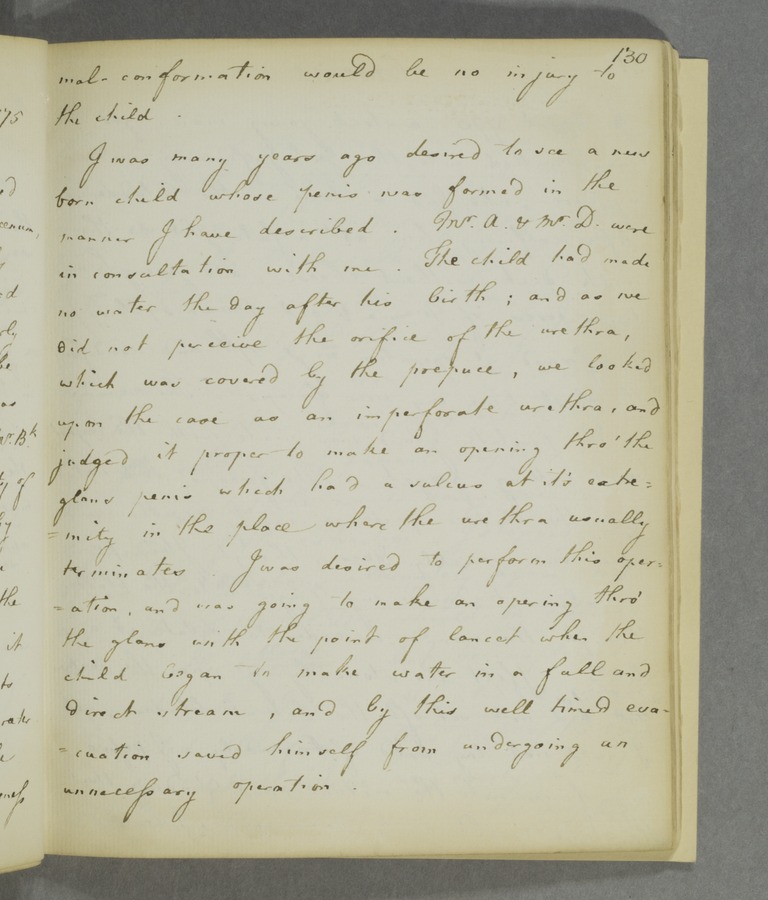 130
mal-conformation would be no injury to
the child.
I was many years ago desired to see a new
born child whose penis was formed in the
manner I have described. Mr. A. & Mr. D. were
in consultation with me. The child had made
no water the day after his birth; and as we
did not perceive the orifice of the urethra,
which was covered by the prepuce, we looked
upon the case as an imperforate urethra, and
judged it proper to make an opening thro' the
glans penis which had a sulcus at it's extre=
=mity in the place where the urethra usually
terminates. I was desired to perform this oper=
=ation, and was going to make an opening thro'
the glans with the point of lancet when the
child began to make water in a full and
direct stream, and by this well timed eva-
=cuation saved himself from undergoing an
unnecessary operation.
175
Mr. Bk
ty of
by
the
it